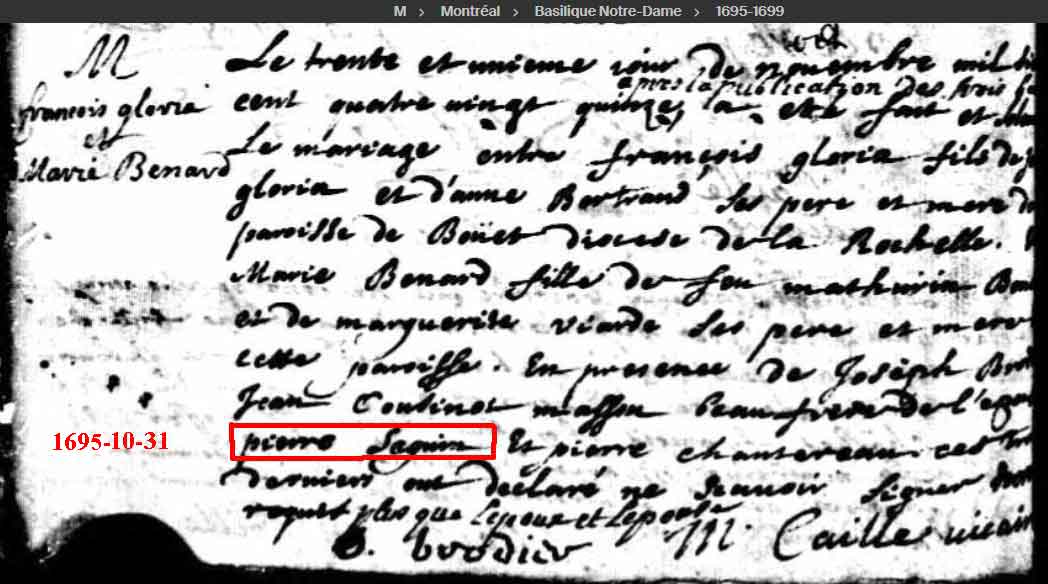 M > Montréal > Basilique Notre-Dame > 1695-1699
oct
M
françois gloria
et
Marie Benard
Le trente et unieme iour de nouembre mil
apres la publication des trois
cent quatre uingt quinze a esté fait et
Le mariage entre françois gloria fils de
gloria et d'anne Bertrand ses pere et mere
paroisse de Boüet diocese de la Rochelle.
Marie Benard fille de feu mathurin
et de marguerite viarde ses pere et mere
cette paroisse. En presence de Joseph
Jean Coutinot masson beau frere de
1695-10-31
pierre Seguin Et pierre chantereau ces
dernier ont declaré ne sçauoir signer
requis plus que Lepoux et Lepouse
brodier M. Caille uicair